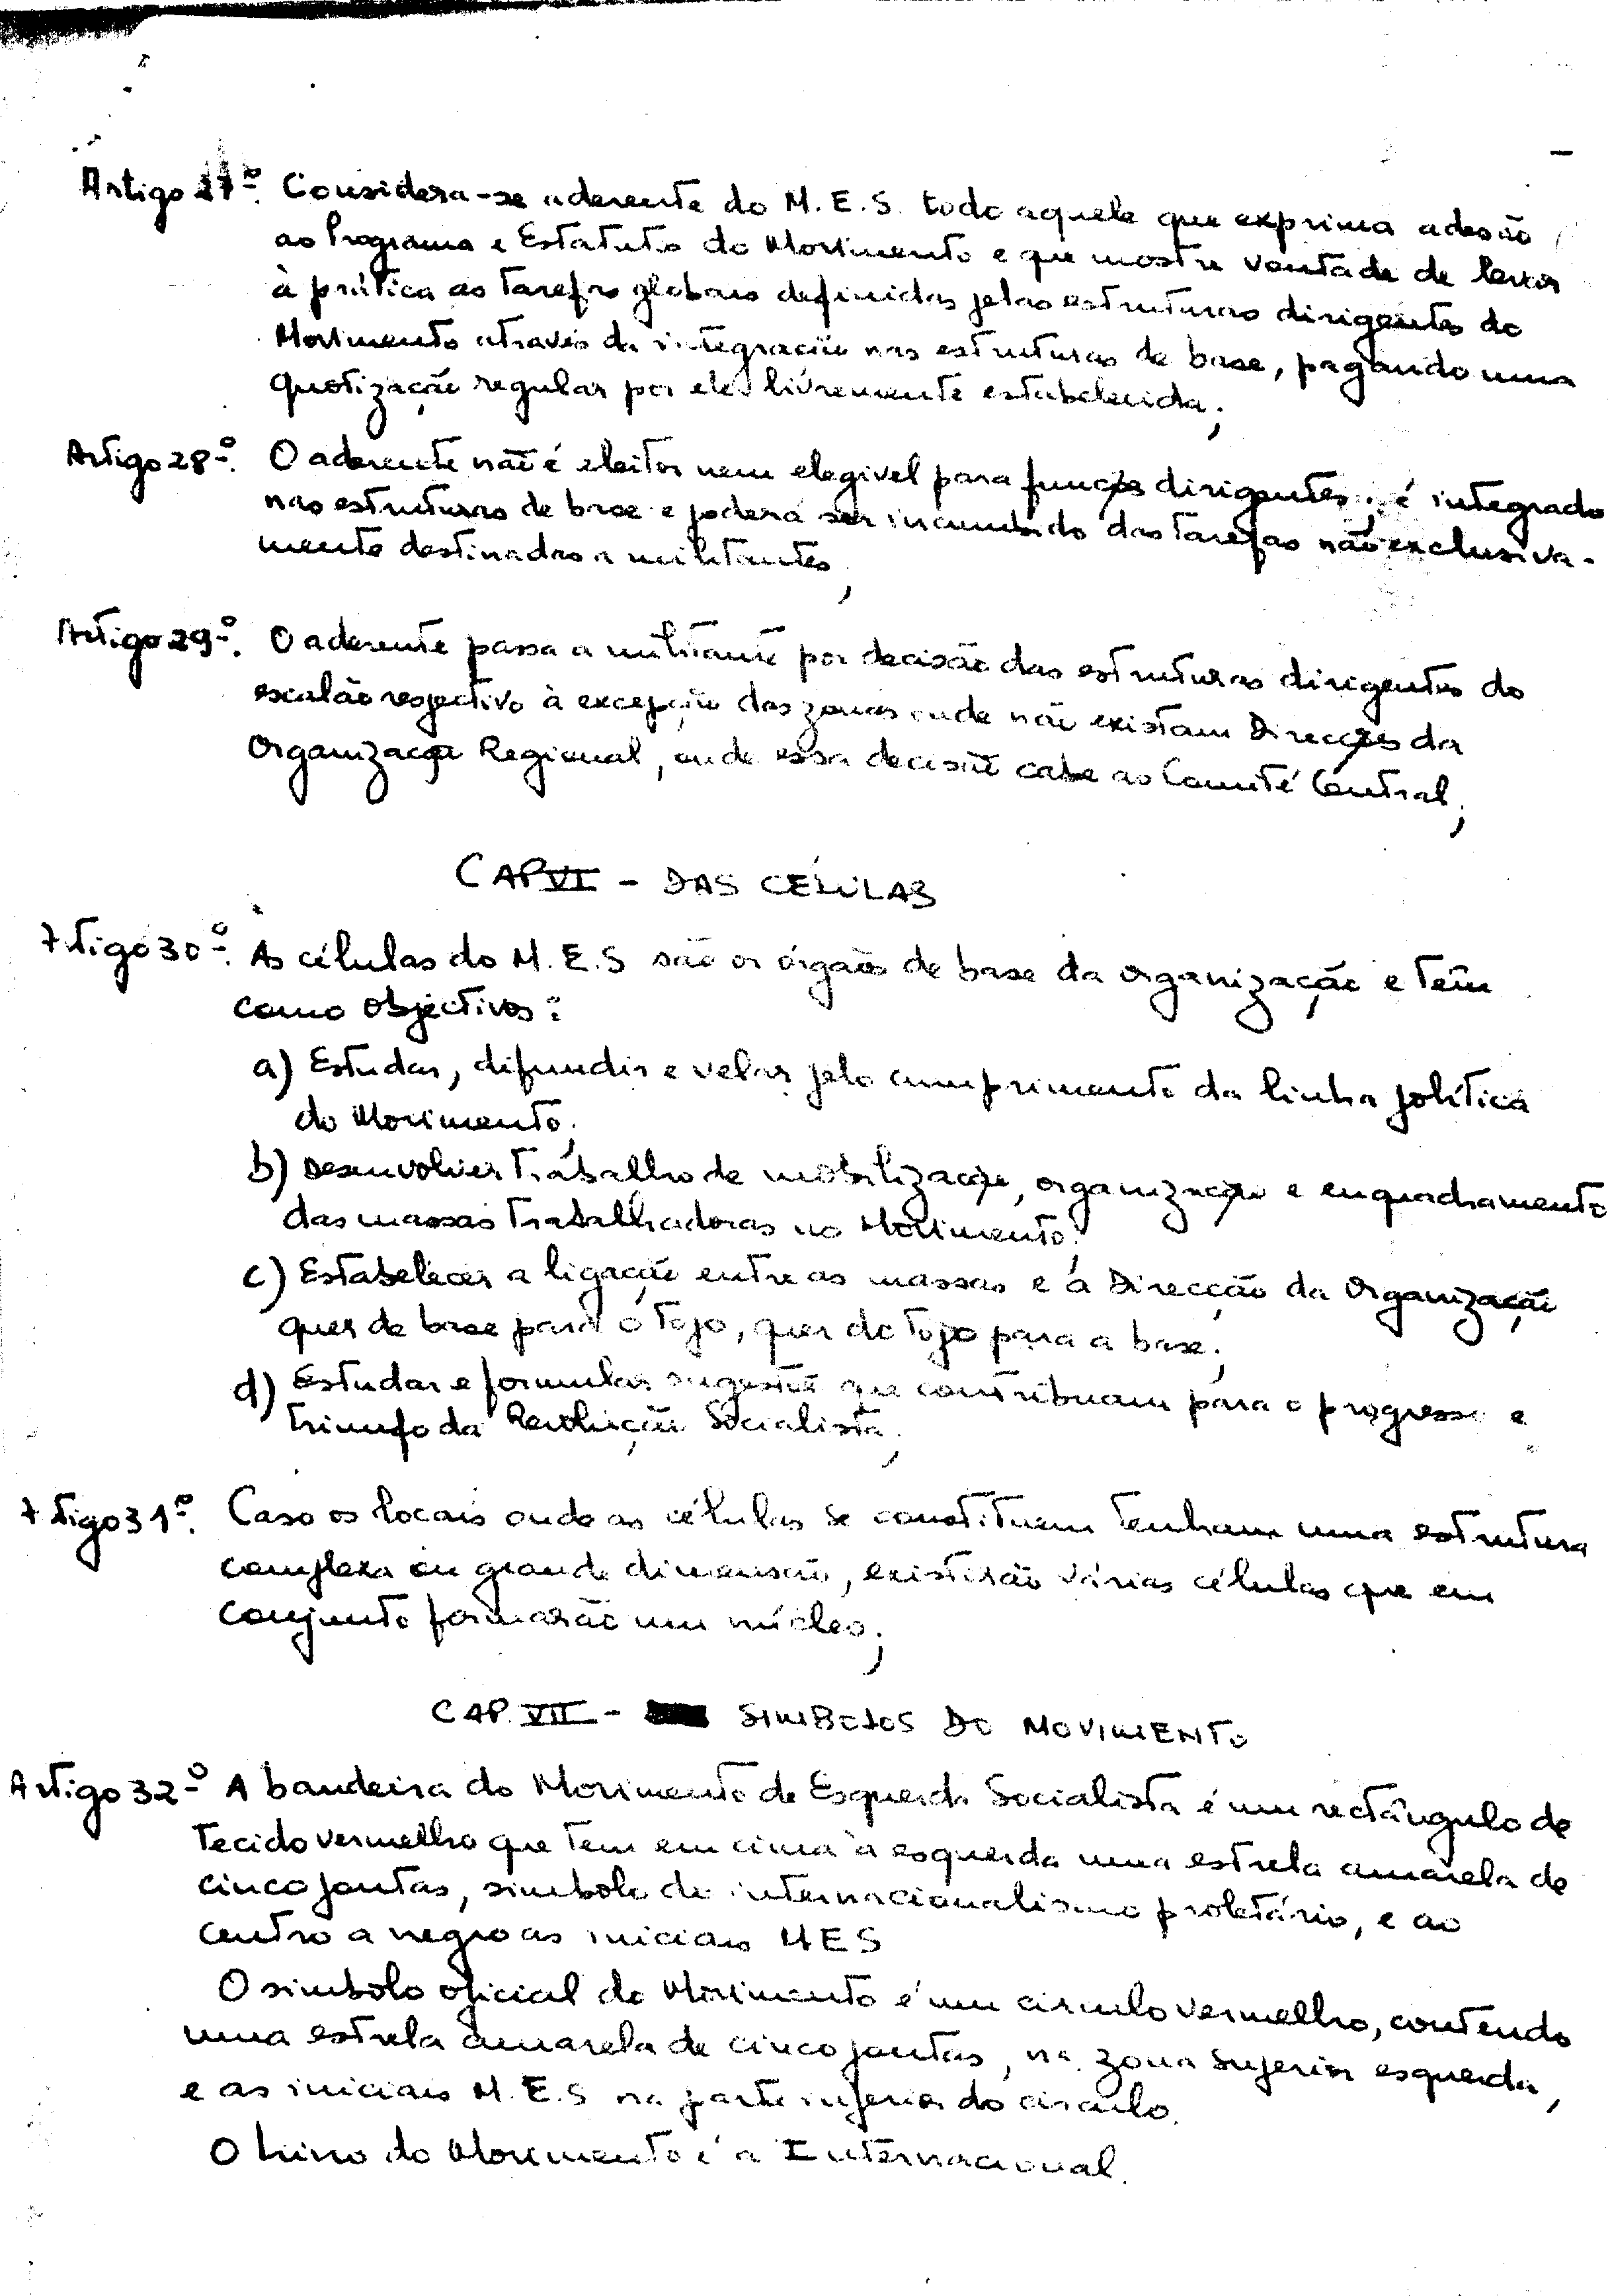 Artigo 27º. Considera-se aderente do M.E.S. todo aquele que exprima adesão
ao Programa e Estatutos do Movimento e que mostre vontade de levar
à prática as tarefas globais definidas pelas estruturas dirigentes do
Movimento através da integração nas estruturas de base, pagando uma
quotização regular por eles livremente estabelecida;
Artigo 28º. O aderente não é eleitor nem elegivel para funções dirigentes; é integrado
nas estruturas de base e poderá ser incumbido das tarefas não exclusiva-
mente destinadas a militantes;
Artigo 29º. O aderente passa a militante por decisão das estruturas dirigentes do
escalão respectivo à excepção das zonas onde não existam Direcções da
Organização Regional, onde essa decisão cabe ao Comité Central;
CAP VI - DAS CÉLULAS
Artigo 30º. As células do M.E.S são os órgãos de base da organização e têm
como objectivos:
a) Estudar, difundir e velar pelo cumprimento da linha política
do Movimento;
b) Desenvolver trabalho de mobilização, organização e enquadramento
das massas trabalhadoras no Movimento;
c) Estabelecer a ligação entre as massas e a Direcção da Organização
quer de base para o topo, quer do topo para a base;
d) Estudar e formular sugestões que contribuam para o progresso e
triunfo da Revolução Socialista;
Artigo 31º. Caso os locais onde as células se constituem tenham uma estrutura
complexa ou grande dimensão, existirão várias células que em
conjunto formarão um núcleo;
CAP. VII - SIMBOLOS DO MOVIMENTO
Artigo 32º A bandeira do Movimento de Esquerda Socialista é um rectângulo de
tecido vermelho que tem em cima à esquerda uma estrela amarela de
cinco pontas, simbolo do internacionalismo proletário, e ao
centro a negro as iniciais MES
O simbolo oficial do Movimento é um circulo vermelho, contendo
uma estrela amarela de cinco pontas, na zona superior esquerda,
e as iniciais M.E.S na parte inferior do circulo.
O hino do Movimento é a Internacional.